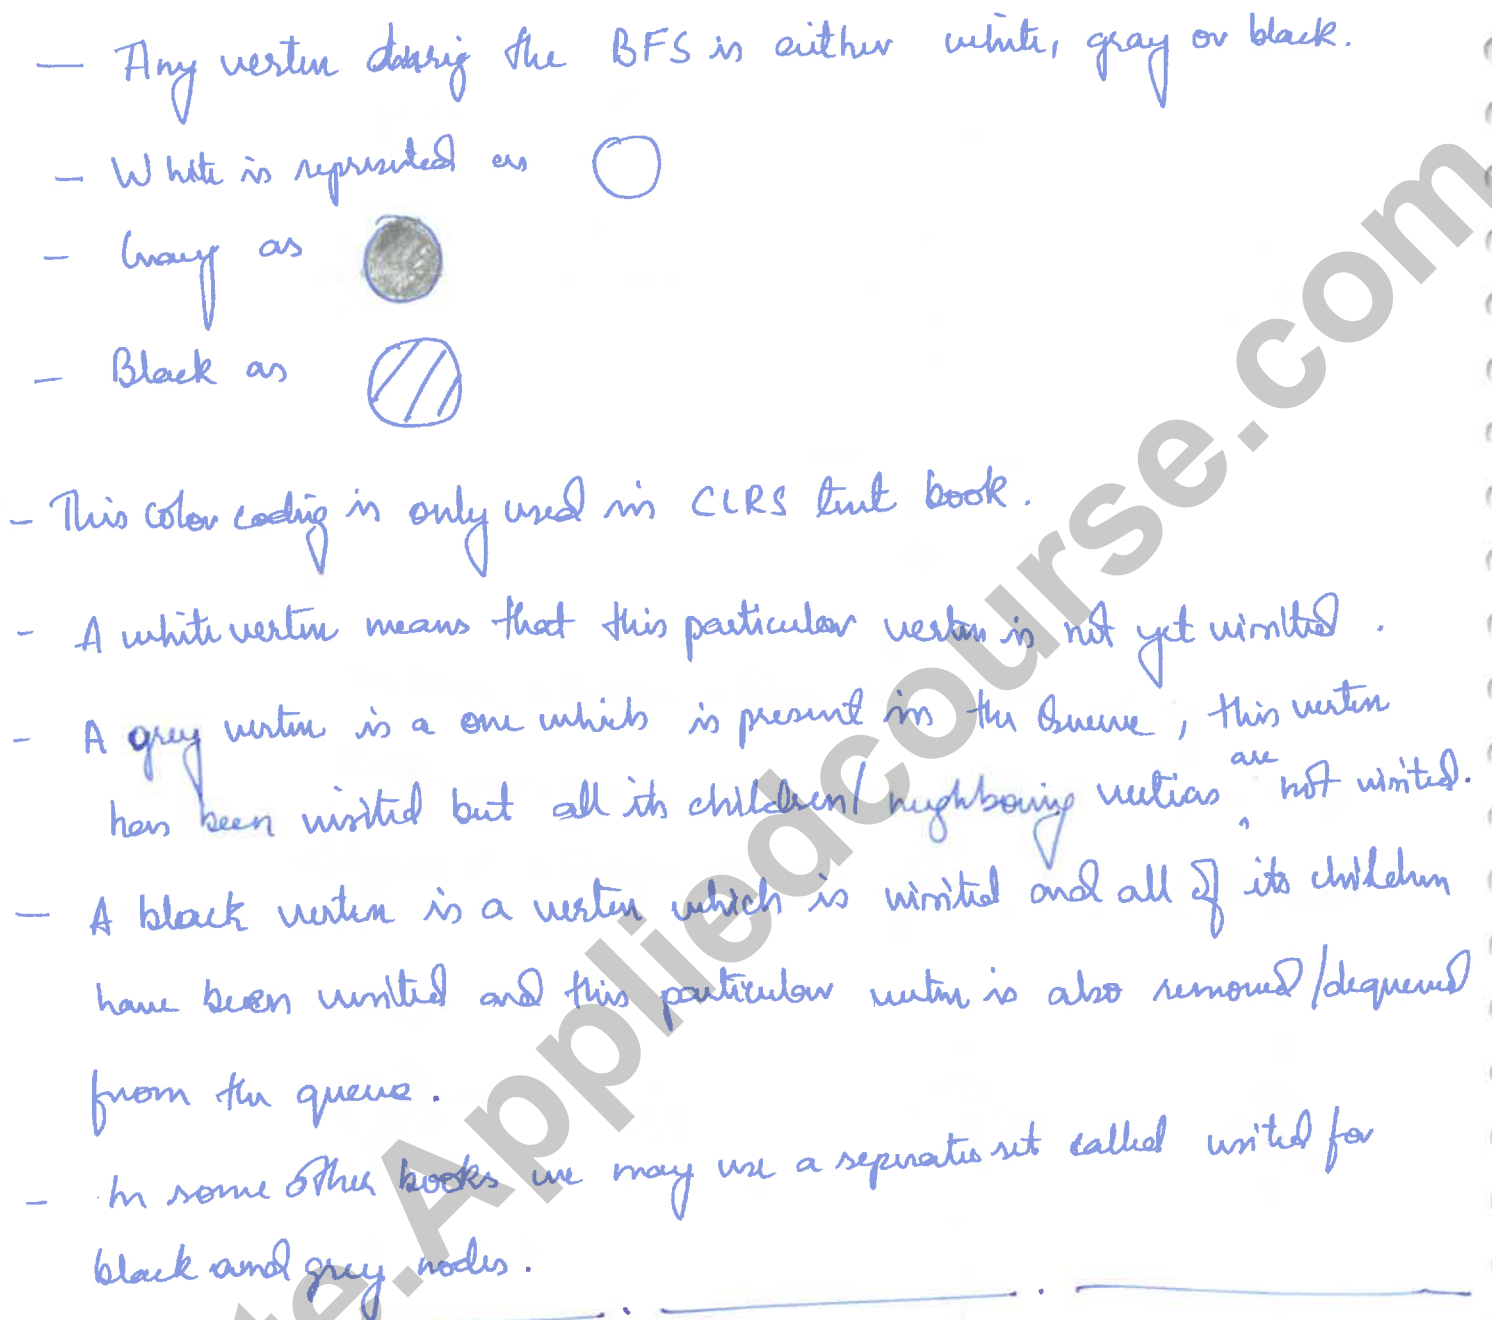 — Any vertex during the BFS is either white, gray or black.
— White is represented as
— Gray as
— Black as
- This color coding is only used in CLRS text book.
- A white vertex means that this particular vertex is not yet visited.
- A grey vertex is a one which is present in the Queue, this vertex
has been visited but all its children/ neighbouring vertices are not visited.
— A black vertex is a vertex which is visited and all of its children
have been visited and this particular vertex is also removed/dequeued
from the queue.
- In some other books we may use a separate set called visited for
black and grey nodes.
te.Appliedcourse.com